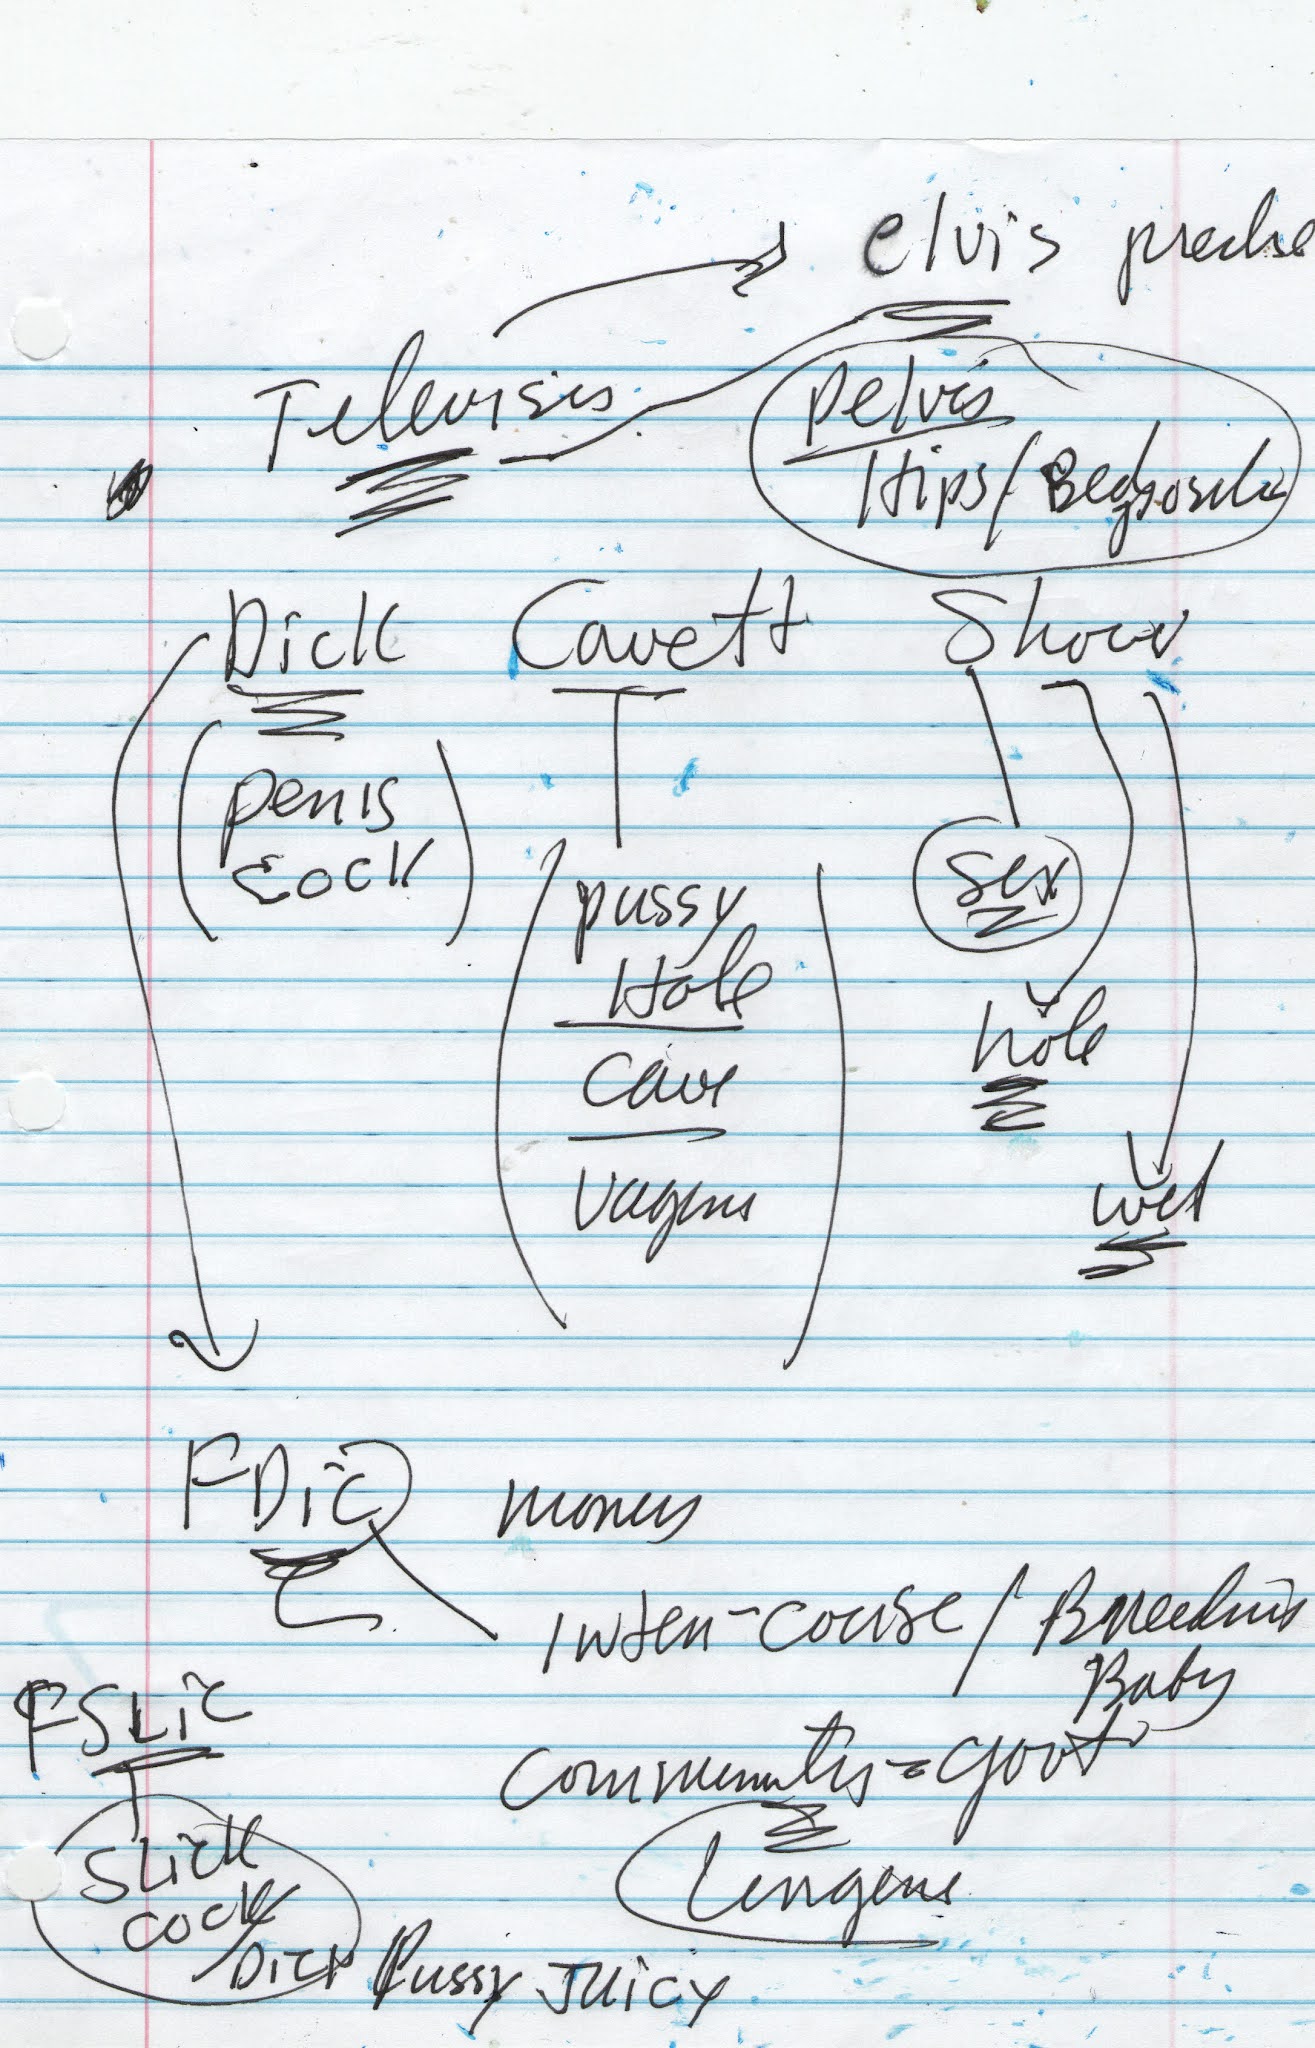 elvis
Television
pelvis
Hips/
Dick Cavett Show
(penis
cock)
(pussy
Hole
cave
vagena)
sex
hole
wet
FDiC money
inter-course /
Baby
FSLiC
community = govt
Slick
cock/
Dick Pussy Juicy